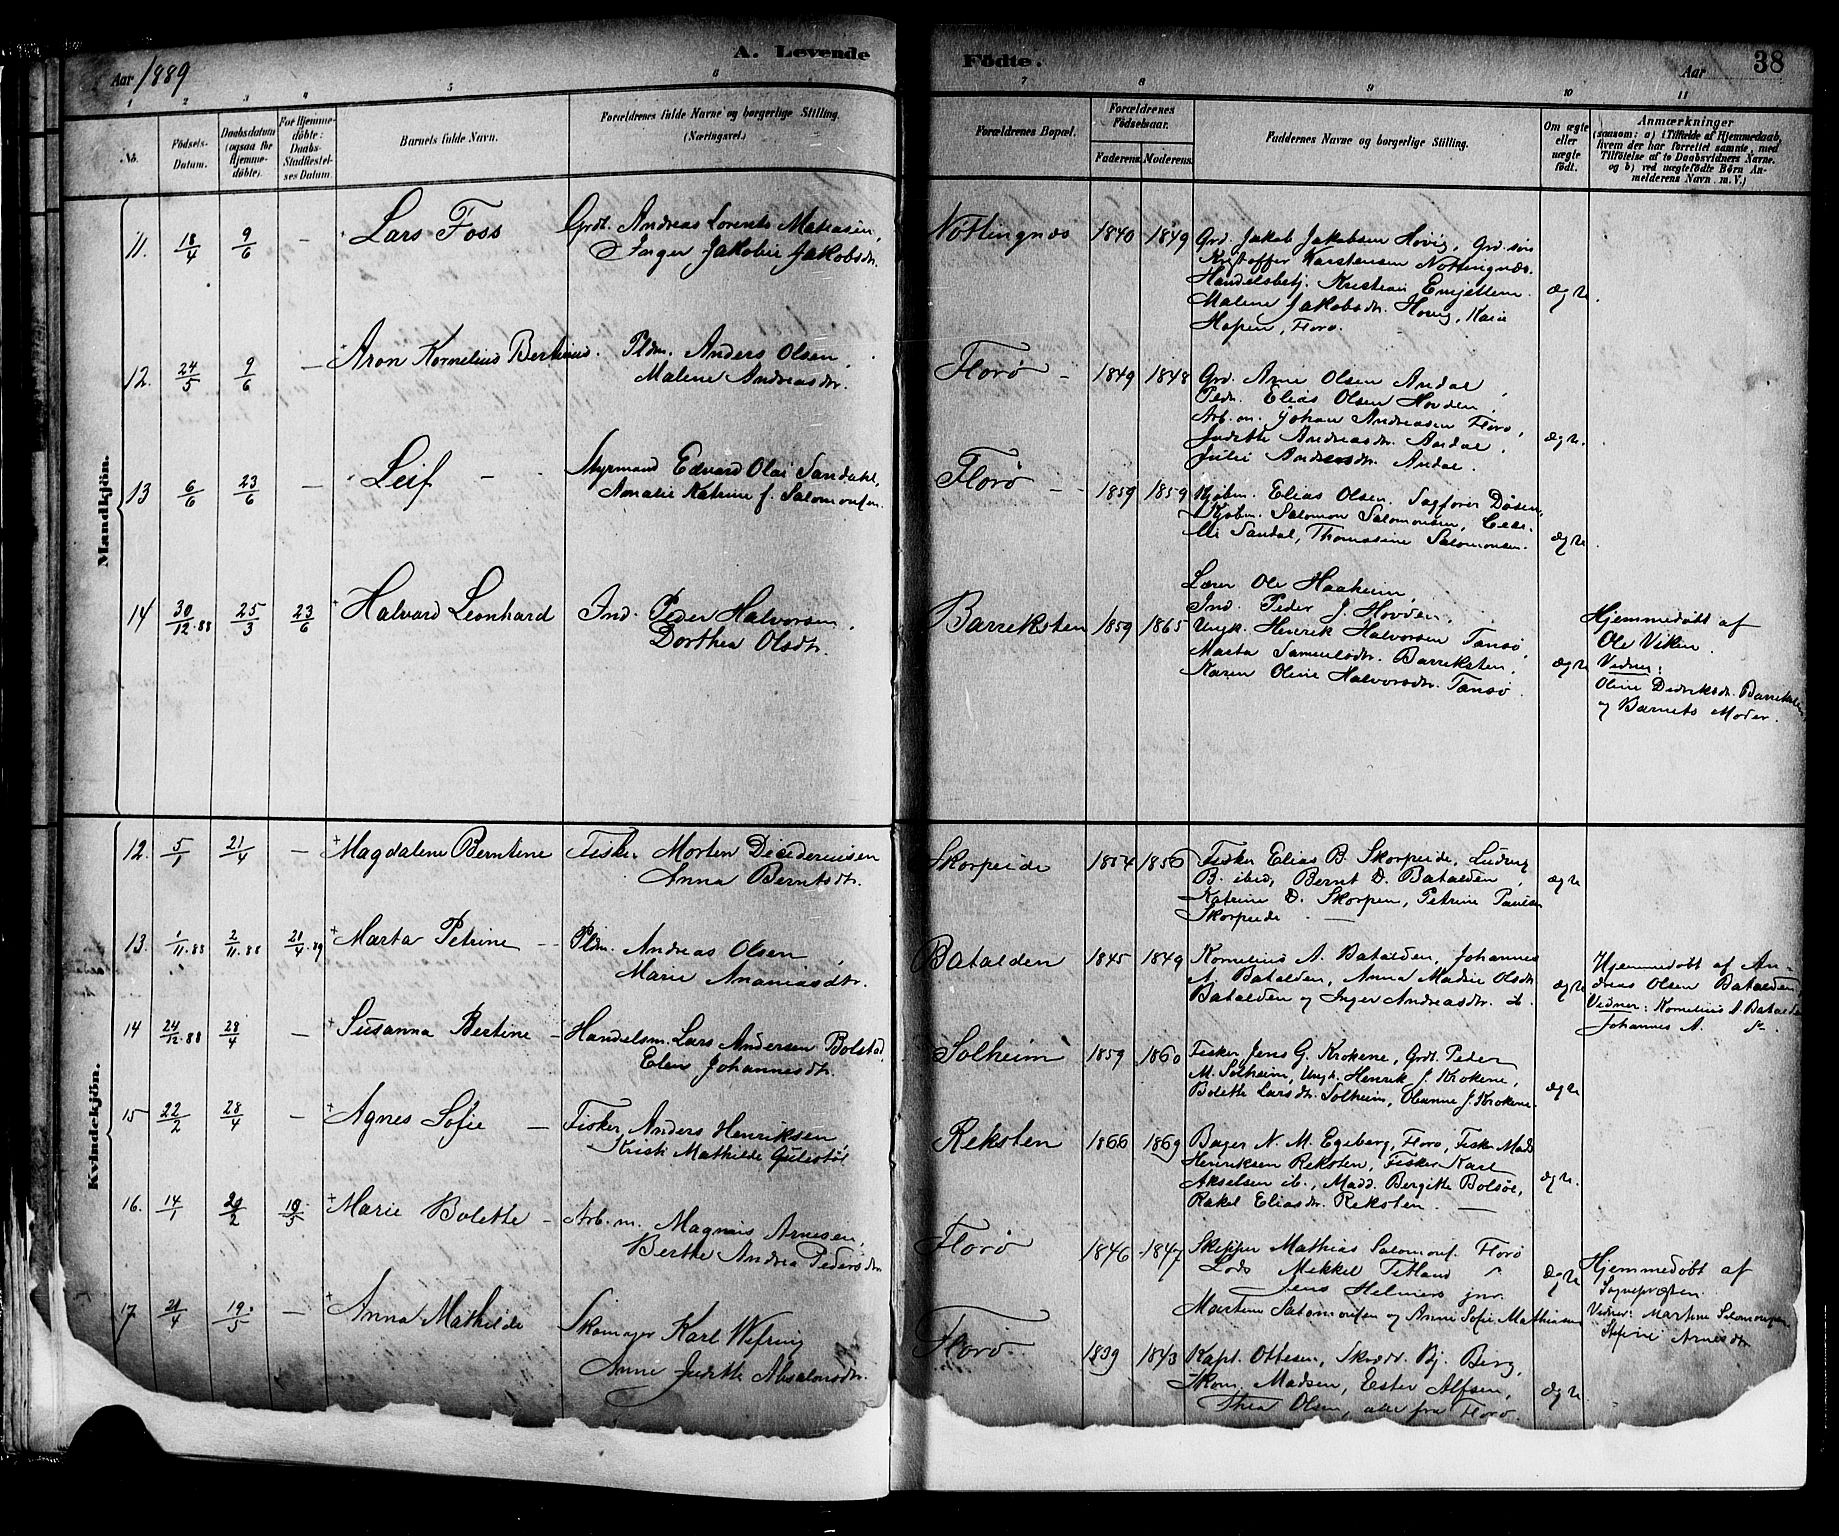 Aar 1889
A. Levende
Födte.
Aar
38
1 2 3 4 5 6
7 8 9 10 11
No.
Födsels-
Datum.
Daabsdatum
(ogsaa for
Hjemme-
döbte).
For Hjemme-
döbte:
Daabs-
Stadfæstel-
ses Datum.
Barnets fulde Navn.
Forældrenes fulde Navne og borgerlige Stilling.
(Næringsvei.)
Forældrenes Bopæl.
Forældrenes
Födselsaar.
Faderens.
Moderens.
Faddernes Navne og borgerlige Stilling.
Om ægte
eller
uægte
födt.
Anmærkninger
(saasom: a) i Tilfælde af Hjemmedaab,
hvem der har forrettet samme, med
Tilföielse af to Daabsvidners Navne.
og b) ved uægtefödte Börn An-
melderens Navn m. V.)
Mandkjön.
11. 18/4 9/6 — Lars Foss
Grdt. Andreas Lorents Matiasen,
Inger Jakobie Jakobsdtr.
Nöttingnæs 1840 1849
Grd. Jakob Jakobsen Hovig, Grd.søn
Kristoffer Karstensen Nöttingnæs.
Handelsbetj. Kristian
Malene Jakobsdtr. Hovig, Karie
Hopen, Florø.
ægte.
12. 24/5 9/6 — Aron Kornelius Bertinius.
Pldm. Anders Olsen,
Malene Andreasdtr.
Florø – 1849 1848
Grd. Arne Olsen Andal,
Pldm. Elias Olsen Hovden,
Arb.m. Johan Andreasen Florø,
Judithe Andreasdtr. Andal,
Julie Andersdtr. Andal.
ægte.
13 6/6 23/6 — Leif –
Styrmand Edvard Olai Sandahl,
Amalie Katrine f. Salomonsen.
Florø – 1859 1859
Kjøbm. Elias Olsen. Sagfører Døsen,
Kjøbm. Salomon Salomonsen, Ceci-
lie Sandal, Thomasine Salomonsen.
ægte.
14 30/12.88 25/3 23/6 Halvard Leonhard
Ind. Peder Halvorsen,
Dorthea Olsdtr.
Barreksten 1859 1865
Lærer Ole Haaheim,
Ind. Peder J. Hovden,
Ungk. Henrik Halvorsen Tansø,
Marta Samuelsdtr. Barreksten,
Karen Oline Halvorsdtr. Tansø.
ægte
Hjemmedøbt af
Ole Viken.
Vidner:
Oline Didriksdtr. Barreksten
og Barnets Moder.
Kvindekjön.
12. 5/1 21/4 — Magdalene Berntine
Fisker Morten Decideriusen
Anna Berntsdtr.
Skorpeide 1854 1856
Fisker Elias B. Skorpeide, Ludvig
B. ibid, Bernt D. Batalden,
Katrine D. Skorpen, Petrine
Skorpeide —
ægte
13. 1/11.88 2/11.88 21/4.89 Marta Petrine –
Pldm. Andreas Olsen,
Marie Ananiasdtr.
Batalden 1845 1849
Kornelius A. Batalden, Johannes
A. Batalden, Anna Madie Olsdtr.
Batalden og Inger Andreasdtr. ib.
ægte
Hjemmedøbt af An-
dreas Olsen Batalden
Vidner: Kornelius A. Batalden
Johannes A.
14 24/12.88 28/4 — Susanna Bertine –
Handelsm. Lars Andersen Bolstad,
Elen Johannesdtr.
Solheim 1859 1860
Fisker Jens G. Krokene, Grdt. Peder
M. Solheim, Ungk. Henrik J. Krokene,
Bolette Larsdtr. Solheim, Oleanne J. Krokene.
ægte
15 22/2 28/4 — Agnes Sofie –
Fisker Anders Henriksen
Krist. Mathilde Gulestøl
Reksten 1866 1869
Bager N. M. Egeberg, Florø, Fisker Mads
Henriksen Reksten, Fisker Karl
Akselsen ib., Madd. Bergitte Bolsøe,
Rakel Eliasdtr. Reksten. —
ægte.
16. 14/1 20/2 19/5 Marie Bolette –
Arb.m. Magnus Arnesen,
Berthe Andrea Pedersdtr
Florø 1846 1847
Skipper Mathias Salomons. Florø
Lods Mekkel Tetland
Jens Helmers jnr.
Martine Salomonsen og Anne Sofie Mathiasen
ægte
Hjemmedøbt af
Sognepræsten.
Vidner: Martine Salomonsen
Arnesdtr
17. 21/4 19/5 — Anna Mathilde
Skomager Karl Wefring
Anne Judithe Absalonsdtr.
Florø. 1839 1843
Kapt. Ottesen, Skrædd. Bj. Berg,
Skom. Madsen, Ester Alfsen,
Thea Olsen, alle fra Florø.
ægte